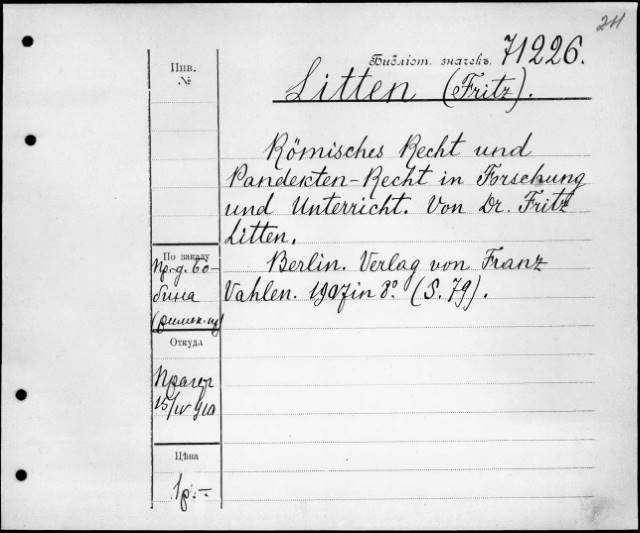 211
Библіот. значекъ. 71226.
Инв.
№
Litten (Fritz).
Römisches Recht und
Pandekten-Recht in Forschung
und Unterricht. Von Dr. Fritz
Litten.
По заказу
Berlin. Verlag von Franz
бина
Vahlen. 1907 in 8° (S. 79).
Откуда
Прагер
15/IV 910
Цѣна
1р.-